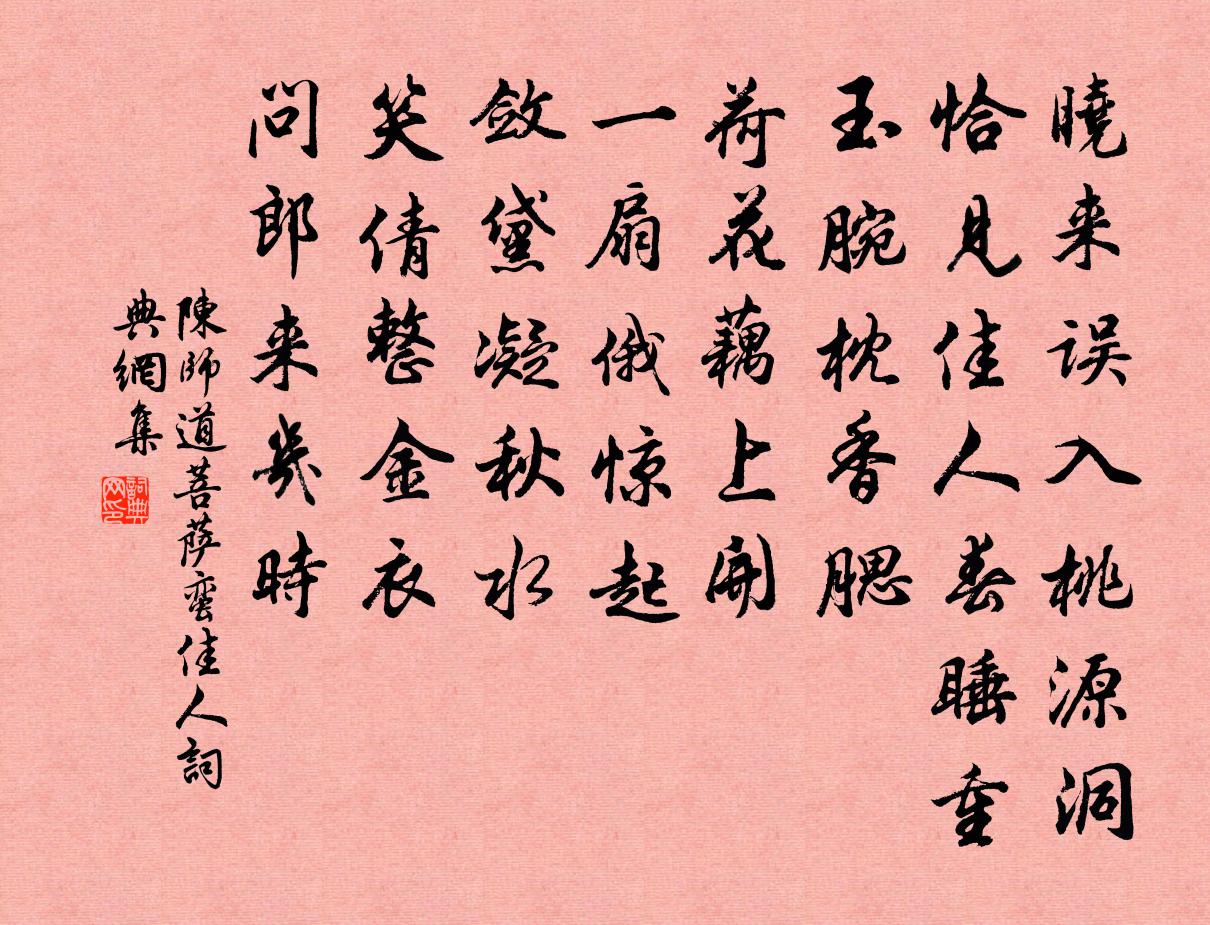 曉来误入桃源洞
恰見佳人春睡重
玉腕枕香腮
荷花藕上開
一扇俄惊起
敛黛凝秋水
笑倩整金衣
问郎来幾時
陳師道菩萨蛮佳人詞
典網集
詞典网印